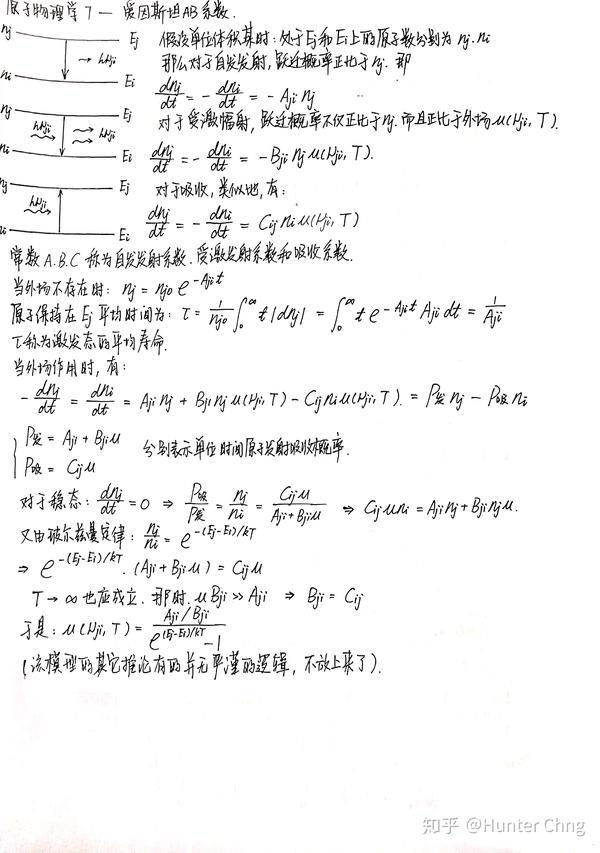 原子物理学7 — 爱因斯坦AB系数.
nj Ej 假设单位体积某时:处于Ej和Ei上的原子数分别为nj.ni
→ hνji 那么对于自发发射,跃迁概率正比于nj.即
ni Ei dnj/dt = -dni/dt = -Aji nj
nj Ej 对于受激辐射,跃迁概率不仅正比于nj.而且正比于外场u(νji,T).
hνji hνji
ni Ei dnj/dt = -dni/dt = -Bji nj u(νji,T).
Ej 对于吸收,类似地,有:
hνji
ni Ei dnj/dt = -dni/dt = Cij ni u(νji,T)
常数A.B.C称为自发发射系数.受激发射系数和吸收系数.
当外场不存在时: nj = nj0 e^-Ajit
原子保持在Ej平均时间为: τ = 1/nj0 ∫0^∞ t|dnj| = ∫0^∞ t e^-Ajit Aji dt = 1/Aji
τ称为激发态的平均寿命.
当外场作用时,有:
-dnj/dt = dni/dt = Aji nj + Bji nj u(νji,T) - Cij ni u(νji,T). = P发 nj - P吸 ni
P发 = Aji + Bji u
分别表示单位时间原子发射吸收概率.
P吸 = Cij u
对于稳态: dnj/dt = 0 ⇒ P吸/P发 = nj/ni = Cij u/(Aji+Bji u) ⇒ Cij u ni = Aji nj + Bji nj u.
又由玻尔兹曼定律: nj/ni = e^-(Ej-Ei)/kT
⇒ e^-(Ej-Ei)/kT . (Aji + Bji u) = Cij u
T → ∞ 也应成立. 那时. u Bji ≫ Aji ⇒ Bji = Cij
于是: u(νji,T) = (Aji/Bji)/(e^(Ej-Ei)/kT -1)
(该模型的其它推论有的并无严谨的逻辑,不放上来了).
知乎 @Hunter Chng